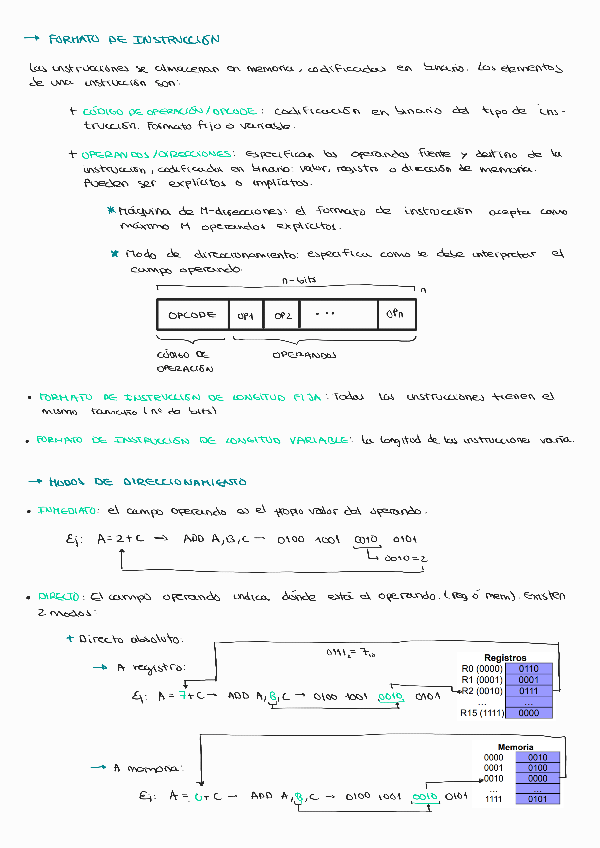 → FORMATO DE INSTRUCCIÓN
Las instrucciones se almacenan en memoria, codificadas en binario. Los elementos
de una instrucción son:
+ CÓDIGO DE OPERACIÓN/OPCODE: codificación en binario del tipo de ins-
trucción. Formato fijo o variable.
+ OPERANDOS/DIRECCIONES: Especifican los operandos fuente y destino de la
instrucción, codificados en binario: valor, registro o dirección de memoria.
Pueden ser explícitos o implícitos.
* Máquina de M-direcciones: el formato de instrucción acepta como
máximo M operandos explícitos.
* Modo de direccionamiento: especifica como se debe interpretar el
campo operando.
n-bits
OPCODE OP1 OP2 ... OPn n
CÓDIGO DE OPERANDOS
OPERACIÓN
• FORMATO DE INSTRUCCIÓN DE LONGITUD FIJA: Todas las instrucciones tienen el
mismo tamaño (nº de bits)
• FORMATO DE INSTRUCCIÓN DE LONGITUD VARIABLE: La longitud de las instrucciones varía.
→ MODOS DE DIRECCIONAMIENTO
• INMEDIATO: el campo operando es el propio valor del operando.
Ej: A=2+C → ADD A,B,C → 0100 1001 0010 0101
↳ 0010=2
• DIRECTO: El campo operando indica, dónde está el operando. (Reg ó Mem). Existen
2 modos:
+ Directo absoluto:
0111₂ = 7₁₀
→ A registro:
Registros
R0 (0000) 0110
R1 (0001) 0001
R2 (0010) 0111
... ...
R15 (1111) 0000
Ej: A = 7+C → ADD A,B,C → 0100 1001 0010 0101
→ A memoria:
Memoria
0000 0010
0001 0100
0010 0000
... ...
1111 0101
Ej: A = 0+C → ADD A,B,C → 0100 1001 0010 0101